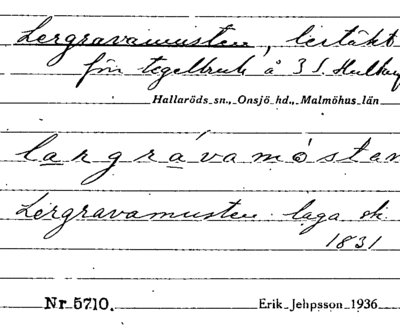 Lergravamusten, lertäkt
för tegelbruk å 3 S. Hultarp
Hallaröds sn., Onsjö hd., Malmöhus län
largrávamóstan
Lergravamusten laga sk.
1831
Nr 5710.
Erik Jehpsson 1936